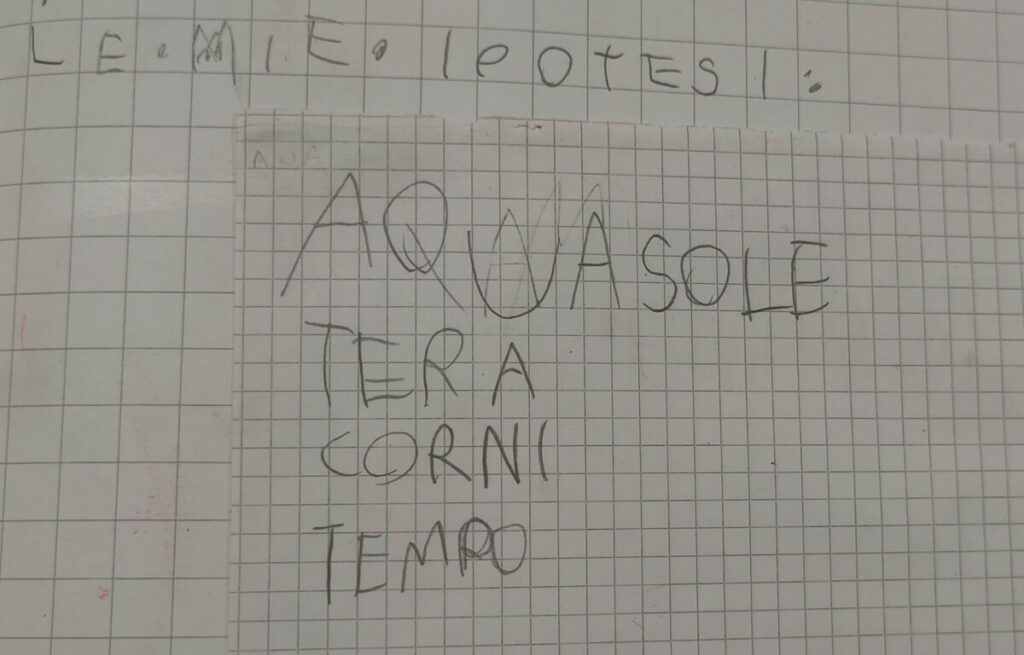 LE. MIE. IPOTESI:
AQUA SOLE
TERA
CORNI
TEMPO